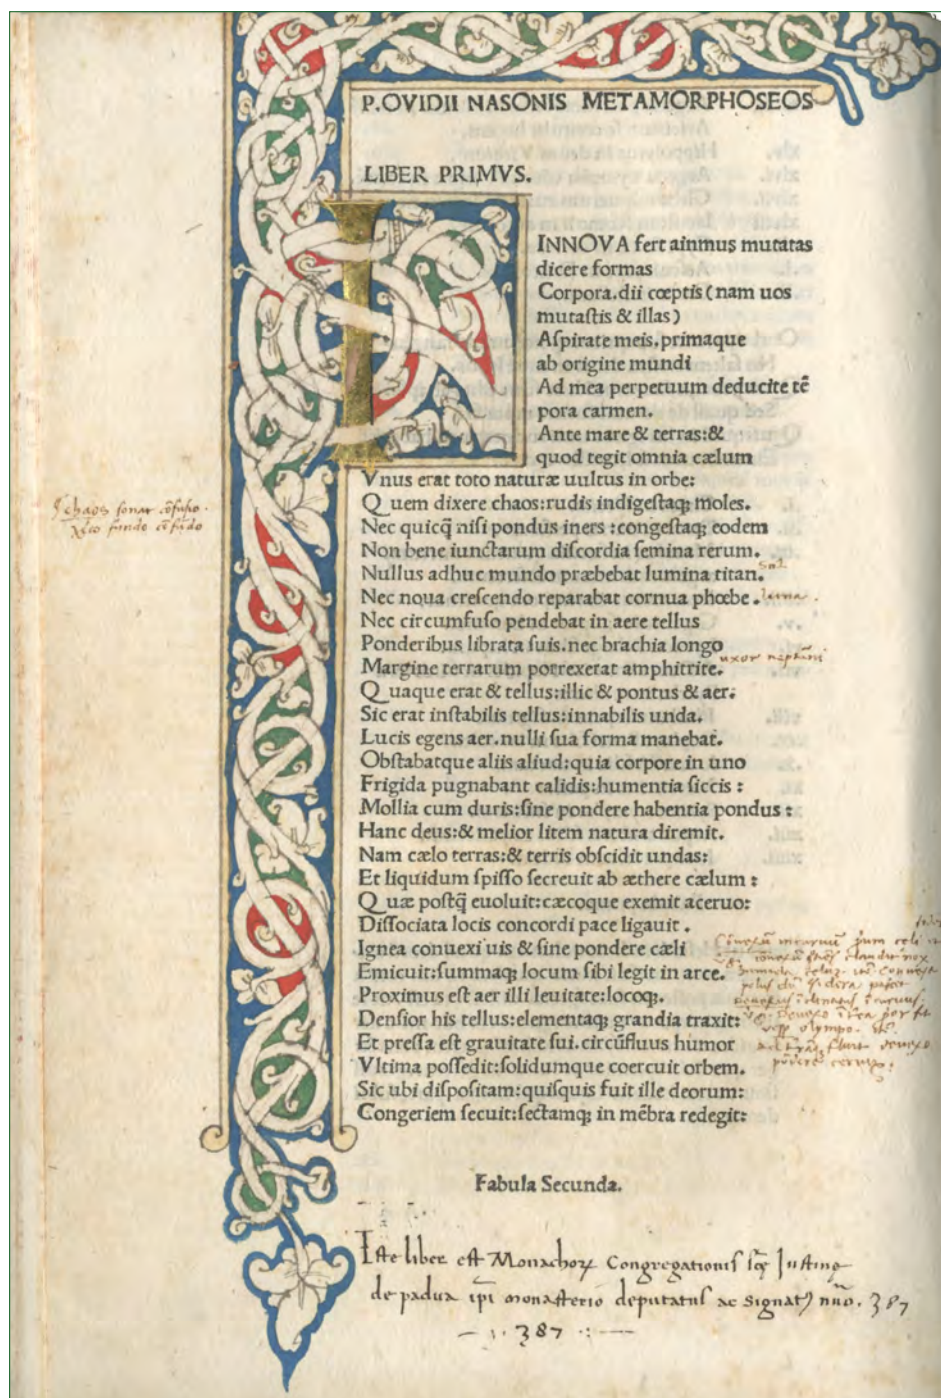 P. OVIDII NASONIS METAMORPHOSEOS
LIBER PRIMVS.
INNOVA fert ainmus mutatas
dicere formas
Corpora.dii cœptis (nam uos
mutaſtis & illas)
Aſpirate meis.primaque
ab origine mundi
Ad mea perpetuum deducite tē
pora carmen.
Ante mare & terras:&
quod tegit omnia cælum
Vnus erat toto naturæ uultus in orbe:
Quem dixere chaos:rudis indigeſtaq; moles.
Nec quicq̄ niſi pondus iners :congeſtaq; eodem
Non bene iunctarum diſcordia ſemina rerum.
Nullus adhuc mundo præbebat lumina titan. Sol
Nec noua creſcendo reparabat cornua phœbe . luna .
Nec circumfuſo pendebat in aere tellus
Ponderibus librata ſuis.nec brachia longo
Margine terrarum porrexerat amphitrite. uxor neptuni
Quaque erat & tellus:illic & pontus & aer:
Sic erat inſtabilis tellus:innabilis unda.
Lucis egens aer.nulli ſua forma manebat.
Obſtabatque aliis aliud:quia corpore in uno
Frigida pugnabant calidis:humentia ſiccis :
Mollia cum duris:ſine pondere habentia pondus :
Hanc deus:& melior litem natura diremit.
Nam cælo terras:& terris obſcidit undas:
Et liquidum ſpiſſo ſecreuit ab æthere cælum :
Quæ poſtq̄ euoluit:cæcoque exemit aceruo:
Diſſociata locis concordi pace ligauit .
Ignea conuexi uis & ſine pondere cæli
Emicuit:ſummaq; locum ſibi legit in arce.
Proximus eſt aer illi leuitate:locoq;.
Denſior his tellus:elementaq; grandia traxit:
Et preſſa eſt grauitate ſui.circūfluus humor
Vltima poſſedit:ſolidumque coercuit orbem.
Sic ubi diſpoſitam:quiſquis fuit ille deorum:
Congeriem ſecuit:ſectamq; in mēbra redegit:
Fabula Secunda.
chaos ſonat cōfuſio .
fundo cōfundo
Iſte liber eſt Monachoꝝ Congregationis ſcē Juſtine
de padua ipī monaſterio deputatus ac signatꝰ nūo. 387
— 1. 387 .: —